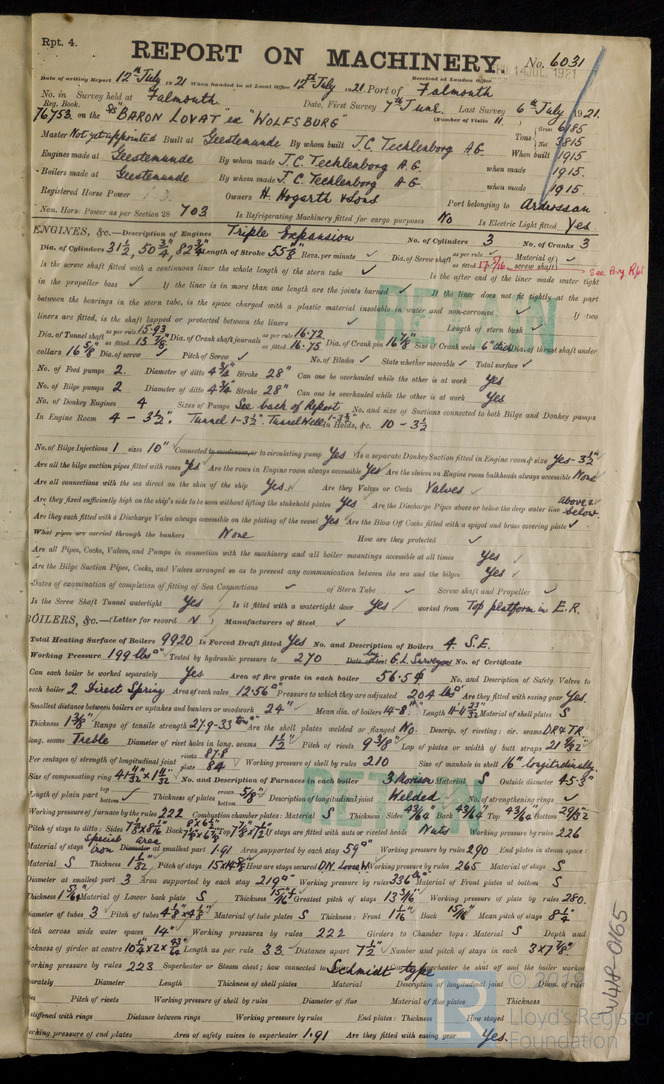 Rpt. 4.
REPORT ON MACHINERY. No. 6031
14 JUL. 1921
Date of writing Report 12th July 1921 When handed in at Local Office 12th July 1921. Port of Falmouth Received at London Office
No. in Survey held at Falmouth Date, First Survey 7th June Last Survey 6th July 1921.
Reg. Book. (Number of Visits 11
76753. on the SS "BARON LOVAT" ex "WOLFSBURG" Tons Gross 6185 Net 3815
Master Not yet appointed Built at Geestemunde By whom built J.C. Tecklenborg A.G. When built 1915
Engines made at Geestemunde By whom made J.C. Tecklenborg A.G. when made 1915.
Boilers made at Geestemunde By whom made J.C. Tecklenborg A.G. when made 1915.
Registered Horse Power Owners H. Hogarth & Sons Port belonging to Ardrossan
Nom. Horse Power as per Section 28 703 Is Refrigerating Machinery fitted for cargo purposes No Is Electric Light fitted Yes
ENGINES, &c.—Description of Engines Triple Expansion No. of Cylinders 3 No. of Cranks 3
Dia. of Cylinders 31½, 50¾, 82¾ Length of Stroke 55⅛ Revs. per minute ✓ Dia. of Screw shaft as per rule ✓ as fitted 17 7/16 Material of screw shaft ✓
See Bry. Rpt
Is the screw shaft fitted with a continuous liner the whole length of the stern tube ✓ Is the after end of the liner made water tight
in the propeller boss ✓ If the liner is in more than one length are the joints burned ✓ If the liner does not fit tightly at the part
between the bearings in the stern tube, is the space charged with a plastic material insoluble in water and non-corrosive ✓ If two
liners are fitted, is the shaft lapped or protected between the liners ✓ Length of stern bush ✓
Dia. of Tunnel shaft as per rule 15.93 as fitted 15⅞ Dia. of Crank shaft journals as per rule 16.72 as fitted 16.75 Dia. of Crank pin 16⅞ Size of Crank webs 6" thick Dia. of thrust shaft under
collars 16⅝ Dia. of screw ✓ Pitch of Screw ✓ No. of Blades ✓ State whether moveable ✓ Total surface ✓
No. of Feed pumps 2. Diameter of ditto 4¾ Stroke 28" Can one be overhauled while the other is at work Yes
No. of Bilge pumps 2 Diameter of ditto 4¾ Stroke 28" Can one be overhauled while the other is at work Yes
No. of Donkey Engines 4 Sizes of Pumps See back of Report No. and size of Suctions connected to both Bilge and Donkey pumps
In Engine Room 4 – 3½". Tunnel 1–3½". Tunnel Well In Holds, &c. 10 – 3½
No. of Bilge Injections 1 sizes 10" Connected to condenser, or to circulating pump Yes Is a separate Donkey Suction fitted in Engine room & size Yes – 3½"
Are all the bilge suction pipes fitted with roses Yes Are the roses in Engine room always accessible Yes Are the sluices on Engine room bulkheads always accessible None
Are all connections with the sea direct on the skin of the ship Yes Are they Valves or Cocks Valves ✓
Are they fixed sufficiently high on the ship's side to be seen without lifting the stokehold plates Yes Are the Discharge Pipes above or below the deep water line above & below
Are they each fitted with a Discharge Valve always accessible on the plating of the vessel Yes Are the Blow Off Cocks fitted with a spigot and brass covering plate ✓
What pipes are carried through the bunkers None How are they protected ✓
Are all Pipes, Cocks, Valves, and Pumps in connection with the machinery and all boiler mountings accessible at all times Yes
Are the Bilge Suction Pipes, Cocks, and Valves arranged so as to prevent any communication between the sea and the bilges Yes
Dates of examination of completion of fitting of Sea Connections ✓ of Stern Tube ✓ Screw shaft and Propeller ✓
Is the Screw Shaft Tunnel watertight Yes Is it fitted with a watertight door Yes worked from Top platform in E.R.
BOILERS, &c.—(Letter for record ✓ ) Manufacturers of Steel ✓
Total Heating Surface of Boilers 9920 Is Forced Draft fitted Yes No. and Description of Boilers 4. S.E.
Working Pressure 199 lbs Tested by hydraulic pressure to 270 by G.L. Surveyor No. of Certificate
Can each boiler be worked separately Yes Area of fire grate in each boiler 56.5 No. and Description of Safety Valves to
each boiler 2 Direct Spring Area of each valve 12.56" Pressure to which they are adjusted 204 lbs Are they fitted with easing gear Yes.
Smallest distance between boilers or uptakes and bunkers or woodwork 24" Mean dia. of boilers 14–8" Length Material of shell plates S
Thickness 1⅜" Range of tensile strength 27.9–33 tons Are the shell plates welded or flanged No Descrip. of riveting: cir. seams DR & TR
long. seams Treble Diameter of rivet holes in long. seams 1½" Pitch of rivets 9⅜" Lap of plates or width of butt straps
Per centages of strength of longitudinal joint rivets 87.8 plate 84 Working pressure of shell by rules 210 Size of manhole in shell 16" longitudinally
Size of compensating ring No. and Description of Furnaces in each boiler 3 Morison Material S Outside diameter 45.3"
Length of plain part top bottom ✓ Thickness of plates crown bottom ⅝" Description of longitudinal joint Welded No. of strengthening rings ✓
Working pressure of furnace by the rules 222 Combustion chamber plates: Material S Thickness: Sides 43/64 Back 43/64 Top 43/64 Bottom 29/32
Pitch of stays to ditto: Sides Back Top If stays are fitted with nuts or riveted heads Nuts Working pressure by rules 226
Material of stays Special iron Diameter at smallest part 1.91 area Area supported by each stay 59 Working pressure by rules 290 End plates in steam space:
Material S Thickness 1 1/32 Pitch of stays How are stays secured Working pressure by rules 265 Material of stays S
Diameter at smallest part 3 Area supported by each stay 219 Working pressure by rules 336 Material of Front plates at bottom S
Thickness Material of Lower back plate S Thickness 15/16 Greatest pitch of stays 13 3/16 Working pressure of plate by rules 280.
Diameter of tubes 3 Pitch of tubes Material of tube plates S Thickness: Front 1 1/16 Back 15/16 Mean pitch of stays 8¼
Pitch across wide water spaces 14" Working pressures by rules 222 Girders to Chamber tops: Material S Depth and
thickness of girder at centre Length as per rule 33. Distance apart 7½ Number and pitch of stays in each 3 x 7⅞"
Working pressure by rules 223 Superheater or Steam chest; how connected to boiler Schmidt type Can the superheater be shut off and the boiler worked
separately Diameter Length Thickness of shell plates Material Description of longitudinal joint Diam. of rivet
Pitch of rivets Working pressure of shell by rules Diameter of flue Material of flue plates Thickness
stiffened with rings Distance between rings Working pressure by rules End plates: Thickness How stayed
Working pressure of end plates Area of safety valves to superheater 1.91 Are they fitted with easing gear Yes.
RETAIN
RETAIN
W442-0165
LR
Lloyd's Register
Foundation